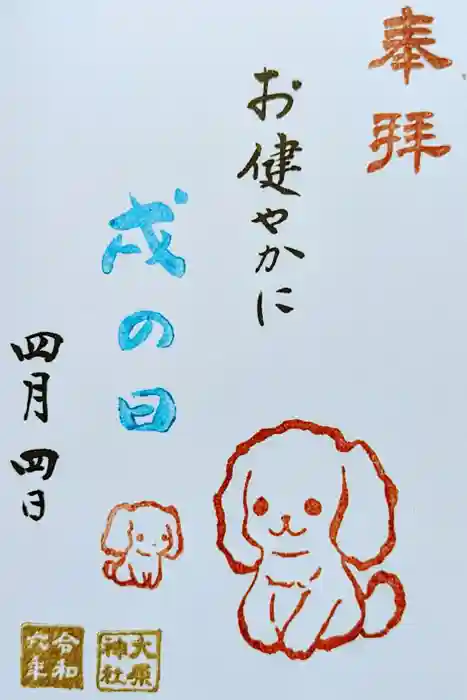 奉拝
お健やかに
戌の日
四月四日
大原神社
令和六年